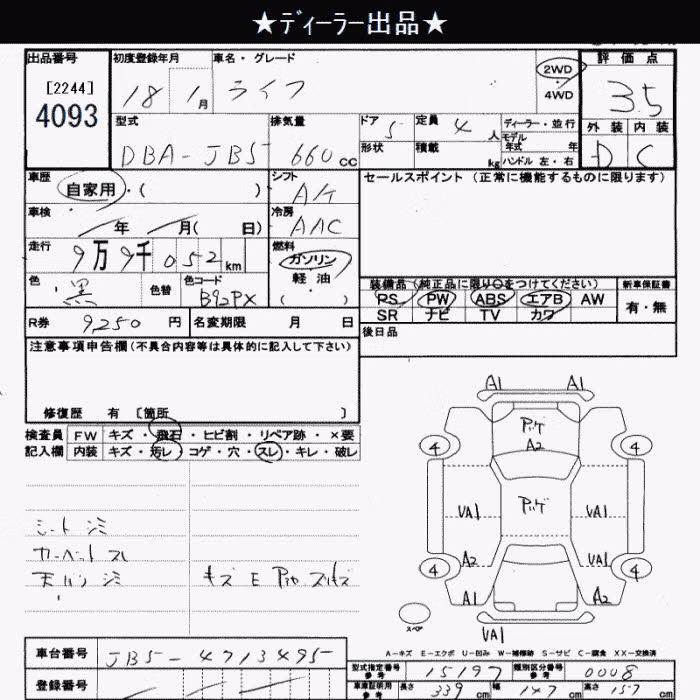 ★ディーラー出品★
出品番号 初度登録年月 車名・グレード 2WD 評価点
[2244] 18 1月 ライフ 4WD 3.5
4093
型式 排気量 ドア 5 定員 4人 ディーラー・並行 外装 内装
DBA-JB5 660cc 形状 積載 kg モデル年式 年 D C
ハンドル 左・右
車歴 シフト セールスポイント (正常に機能するものに限ります)
自家用・( ) A/T
車検 年 月( 日) 冷房
AAC
走行 9万9千052km 燃料
ガソリン
軽油
( )
色 黒 色替 色コード B92PX
装備品 (純正品に限り○をつけてください) 新車保証書
PS PW ABS エアB AW 有・無
SR ナビ TV カワ
R券 9250円 名変期限 月 日 後日品
注意事項申告欄 (不具合内容等は具体的に記入して下さい)
修復歴 有 〔箇所 〕
検査員 FW キズ・飛石・ヒビ割・リペア跡・×要
記入欄 内装 キズ・汚レ・コゲ・穴・スレ・キレ・破レ
A1 A1
PUゲ
A2
4 4
VA1 PUゲ VA1
A2 VA1
4 4
A1 A2
スペア
VA1
シート シミ
カーペット スレ
天バリ シミ キズ E
A-キズ E-エクボ U-凹み W-補修跡 S-サビ C-腐食 XX-交換済
車台番号 JB5-4713495
型式指定番号 参考 15197 類別区分番号 参考 0008
登録番号
車庫証明用 参考 長さ 339cm 幅 147cm 高さ 157cm